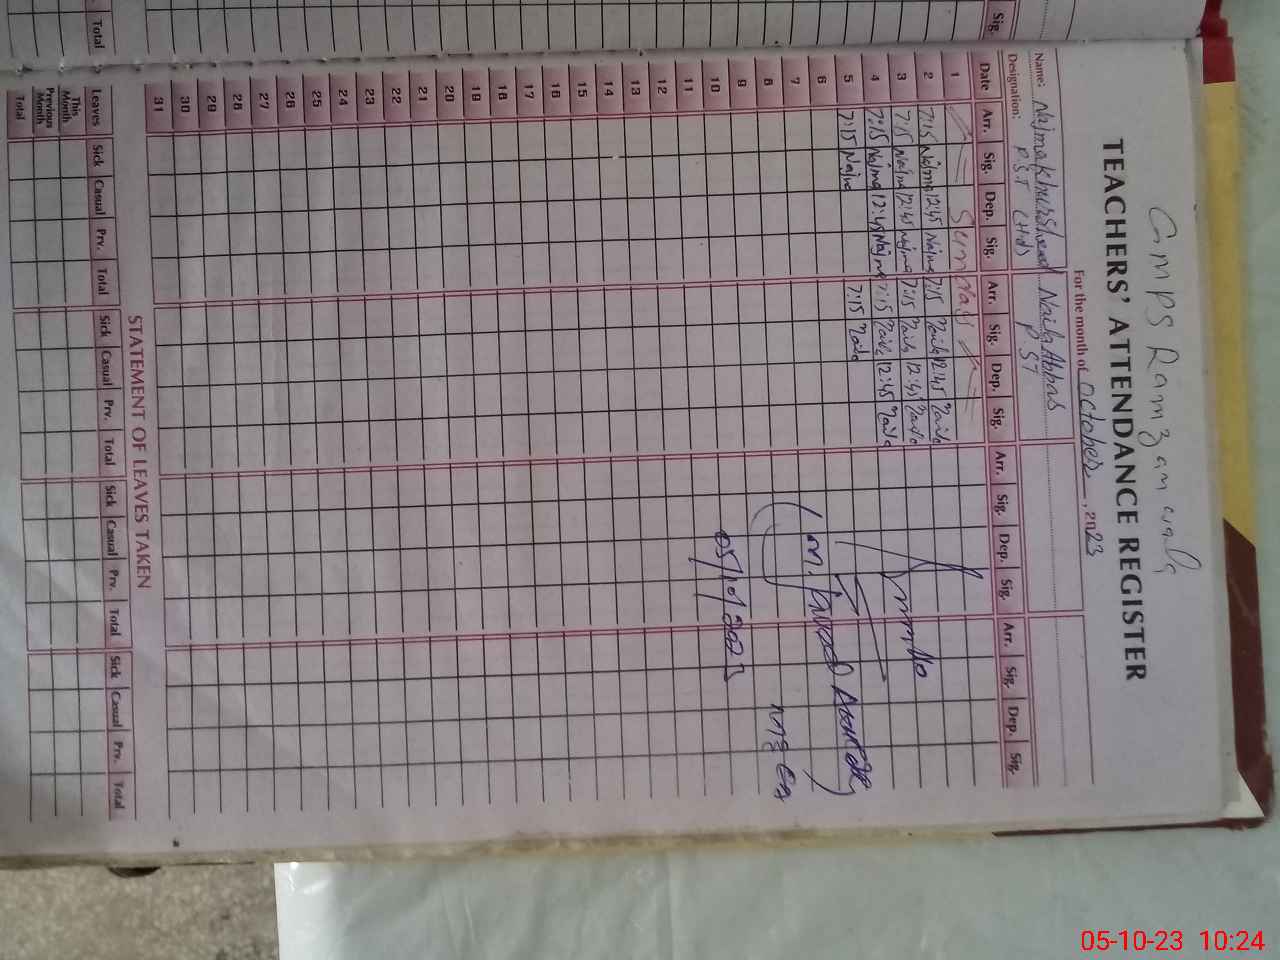 GMPS Ramzan
TEACHERS' ATTENDANCE REGISTER
For the month of October, 2023
Name: Najma Khursheed Naila Abbas
Designation: P.S.T (Hd) P ST
Date Arr. Sig. Dep. Sig. Arr. Sig. Dep. Sig. Arr. Sig. Dep. Sig. Arr. Sig. Dep. Sig.
1 Sunday
2 7:15 Najma 12:45 Najma 7:15 Naila 12:45 Naila
3 7:15 Najma 12:45 Najma 7:15 Naila 12:45 Naila
4 7:15 Najma 12:45 Najma 7:15 Naila 12:45 Naila
5 7:15 Najma 7:15 Naila
6
7
8
9
10 05/10/2023
11
12
13
14
15
16
17
18
19
20
21
22
23
24
25
26
27
28
29
30
31
STATEMENT OF LEAVES TAKEN
Leaves Sick Casual Prv. Total Sick Casual Prv. Total Sick Casual Prv. Total Sick Casual Prv. Total
This Month
Previous Month
Total
Sig.
Total
05-10-23 10:24